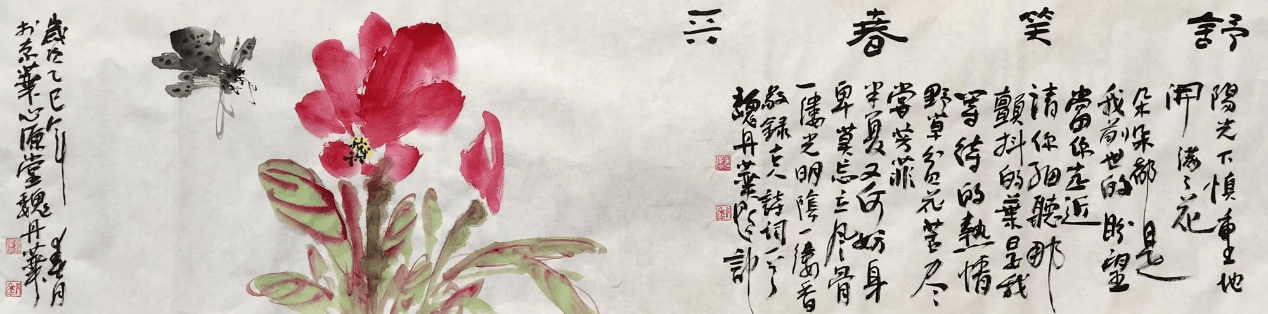 舒笑春兴
陽光下慎重地
開滿了花
朵朵都是
我前世的盼望
當你走近
請你細聽那
顫抖的葉是我
等待的熱情
野草芬花苦尽
當芳菲
半夏又何妨身
卑莫忘立风骨
一陣光明陰一縷香
敬録古人詩詞
魏丹華
歲次乙巳年春月
於京華心匯堂魏丹華